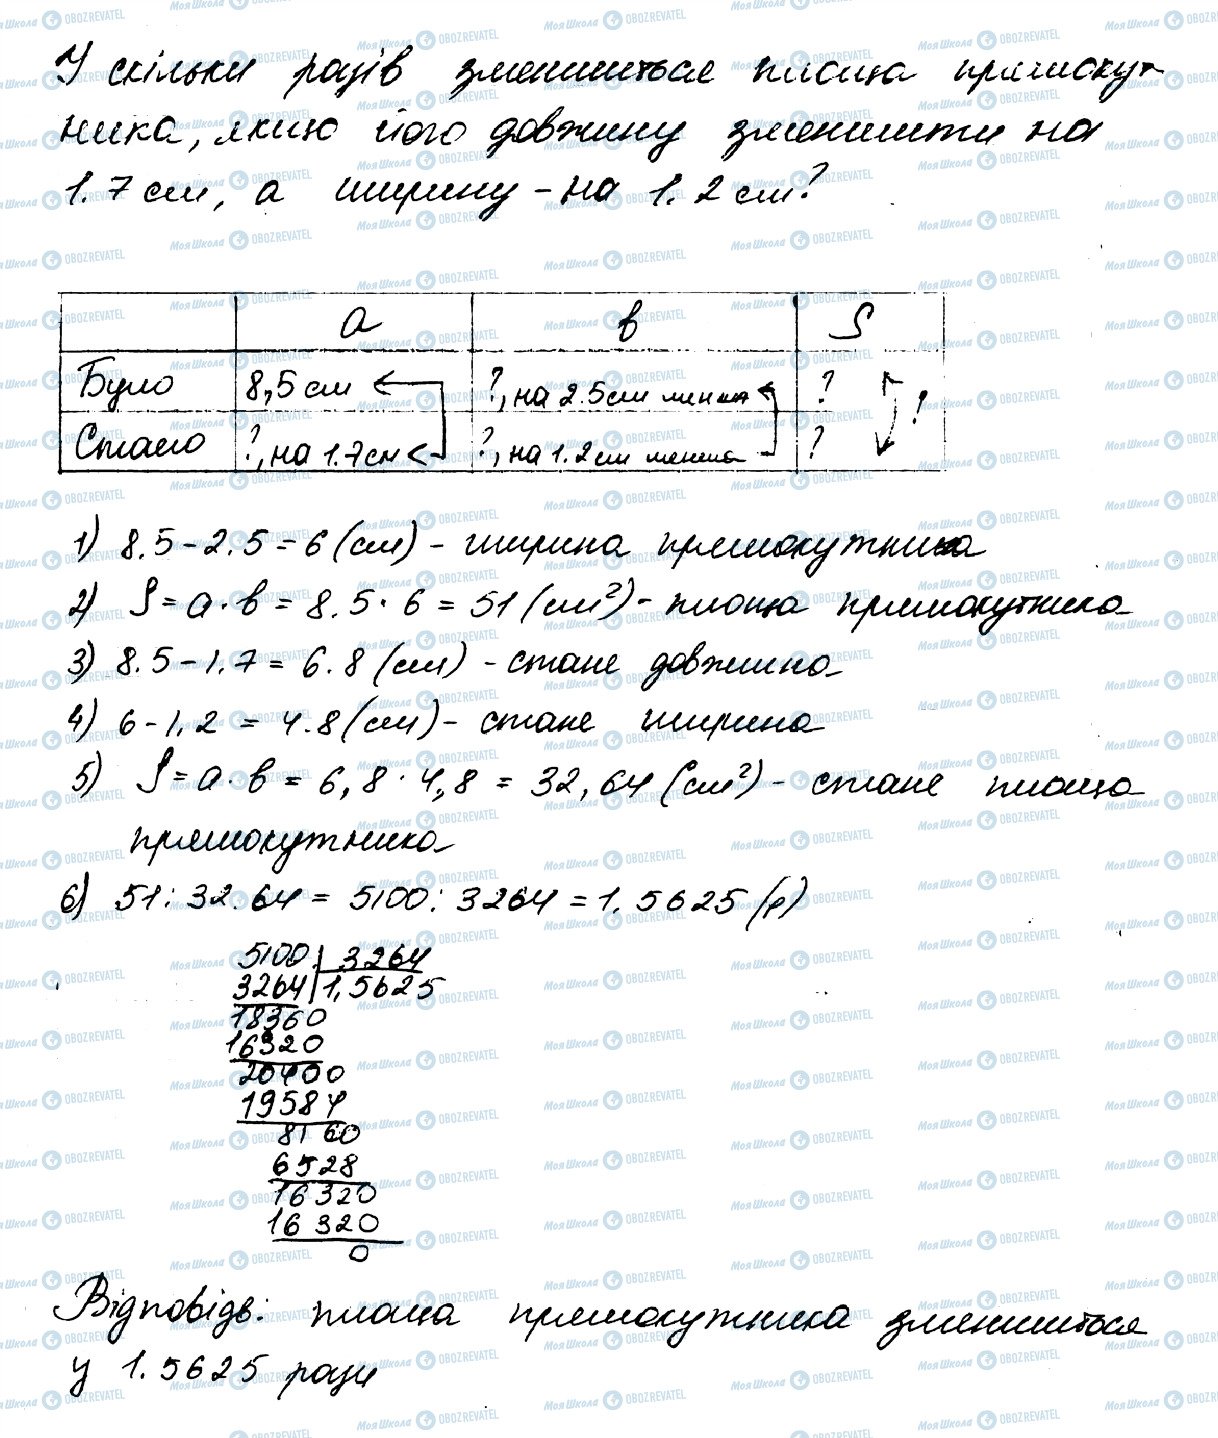 У скільки разів зменшиться площа прямокут-
ника, якщо його довжину зменшити на
1.7 см, а ширину - на 1.2 см?
a в S
Було 8,5 см ?, на 2.5 см менша ? !
Стало ?, на 1.7 см ?, на 1.2 см менша ?
1) 8.5 - 2.5 = 6 (см) - ширина прямокутника
2) S = a · в = 8.5 · 6 = 51 (см²) - площа прямокутника
3) 8.5 - 1.7 = 6.8 (см) - стане довжина
4) 6 - 1,2 = 4.8 (см) - стане ширина
5) S = a · в = 6,8 · 4,8 = 32,64 (см²) - стане площа
прямокутника
6) 51 : 32.64 = 5100 : 3264 = 1.5625 (р)
5100 3264
3264 1,5625
18360
16320
20400
19584
8160
6528
16320
16320
0
Відповідь: площа прямокутника зменшиться
у 1.5625 рази